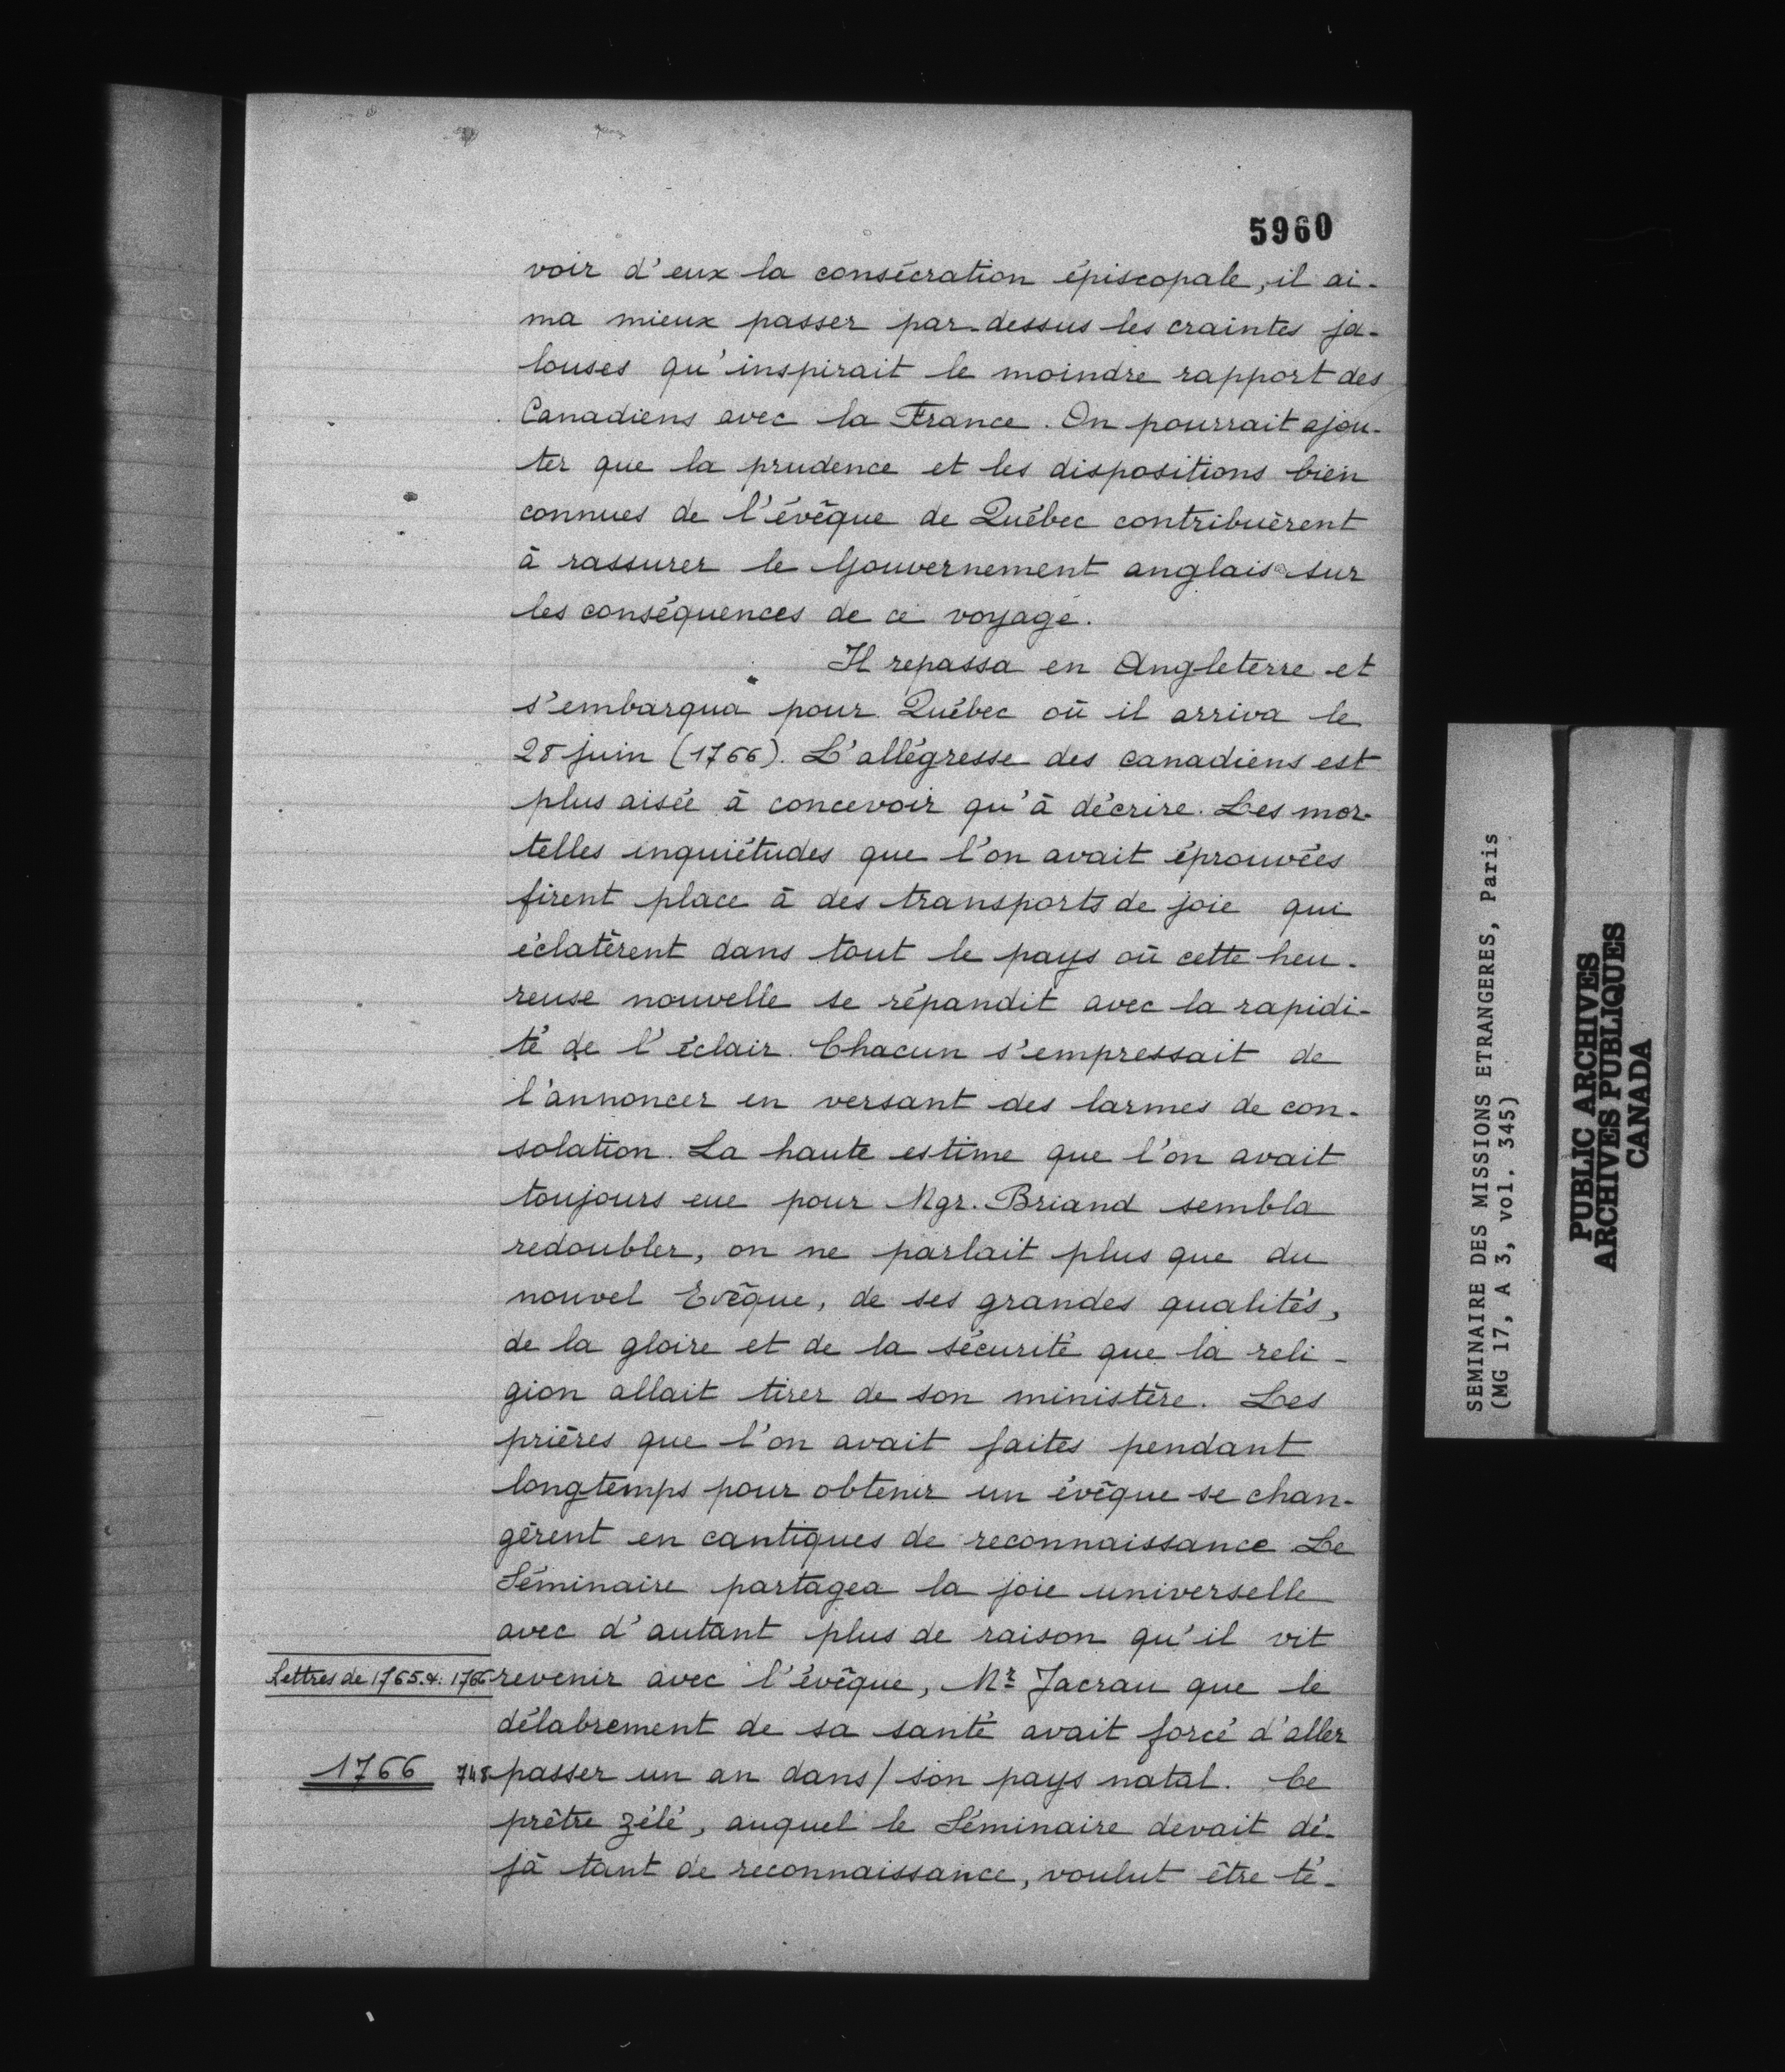 5960
voir d'eux la consécration épiscopale, il ai-
ma mieux passer par-dessus les craintes ja-
louses qu'inspirait le moindre rapport des
Canadiens avec la France. On pourrait ajou-
ter que la prudence et les dispositions bien
connues de l'évêque de Québec contribuèrent
à rassurer le Gouvernement anglais sur
les conséquences de ce voyage.
Il repassa en Angleterre et
s'embarqua pour Québec où il arriva le
28 juin (1766). L'allégresse des canadiens est
plus aisée à concevoir qu'à décrire. Les mor-
telles inquiétudes que l'on avait éprouvées
firent place à des transports de joie qui
éclatèrent dans tout le pays où cette heu-
reuse nouvelle se répandit avec la rapidi-
té de l'éclair. Chacun s'empressait de
l'annoncer en versant des larmes de con-
solation. La haute estime que l'on avait
toujours eue pour Mgr. Briand sembla
redoubler, on ne parlait plus que du
nouvel Evêque, de ses grandes qualités,
de la gloire et de la sécurité que la reli-
gion allait tirer de son ministère. Les
prières que l'on avait faites pendant
longtemps pour obtenir un évêque se chan-
gèrent en cantiques de reconnaissance Le
Séminaire partagea la joie universelle
avec d'autant plus de raison qu'il vit
Lettres de 1765. &. 1766 revenir avec l'évêque, Mr Jacrau que le
délabrement de sa santé avait forcé d'aller
1766 748 passer un an dans/ son pays natal. Ce
prêtre zélé, auquel le Séminaire devait dé-
jà tant de reconnaissance, voulut être té-
SEMINAIRE DES MISSIONS ETRANGERES, Paris
(MG 17, A 3, vol. 345)
PUBLIC ARCHIVES
ARCHIVES PUBLIQUES
CANADA